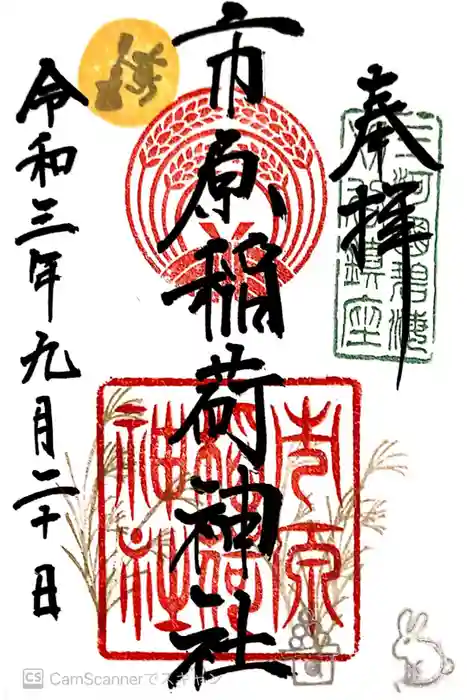 奉拝
市原稲荷神社
令和三年九月二十日
市原稲荷神社
CS CamScannerでスキャン